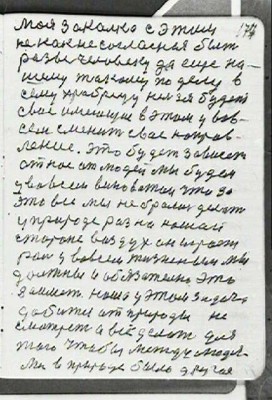 моя закалка с этим 174
не как не согласная быт
разве человеку да еще на-
шему такому по делу в
сему храбрецу нельзя будет
свое имеющие в этом у вов-
сем сменит свае направ-
ление. Это будет зависет
от нас от людей мы будем
у вовсем виноваты что за
это все мы не брались делат
у природе раз на нашей
стороне воздух он играет
рол у вовсем жизненым мы
должны и обязателно это
заиметь. наша у этом задача
добится от природы не
смотреть а все делат для
того чтобы между людя-
ми в природе было другое